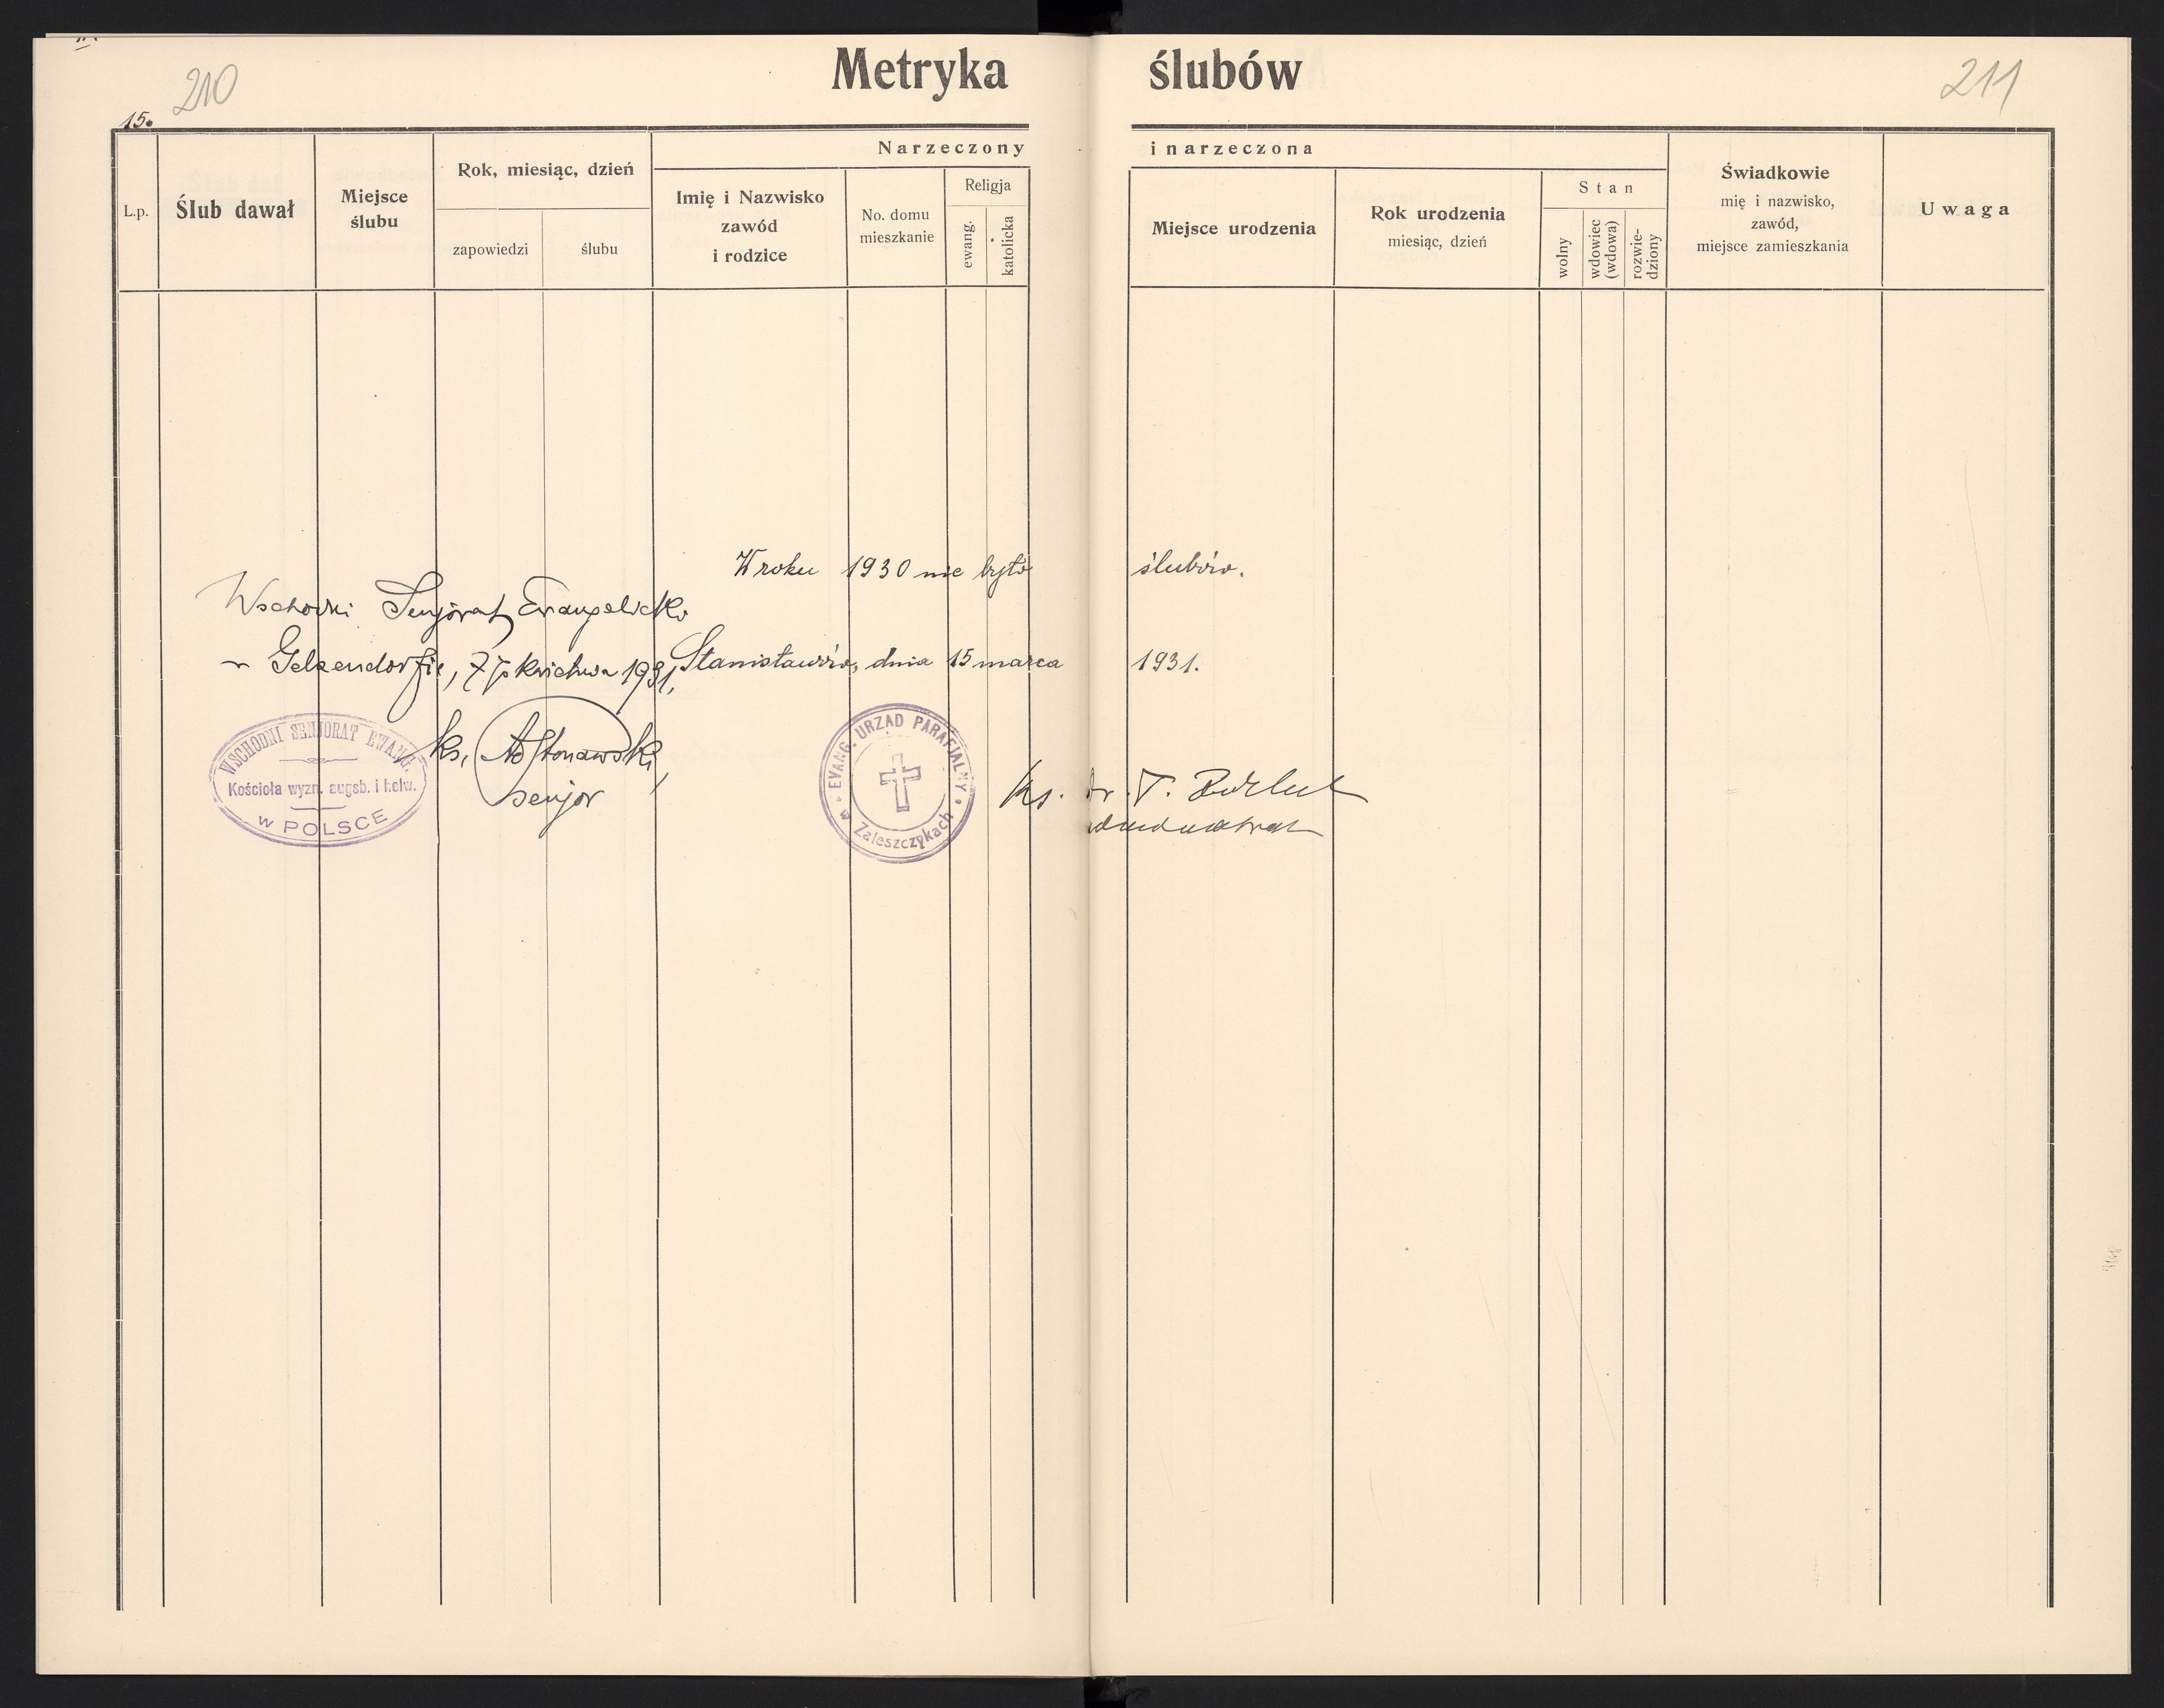 210
Metryka ślubów
211
15.
L.p.
Ślub dawał
Miejsce
ślubu
Rok, miesiąc, dzień
zapowiedzi
ślubu
Narzeczony i narzeczona
Imię i Nazwisko
zawód
i rodzice
No. domu
mieszkanie
Religja
ewang.
katolicka
Miejsce urodzenia
Rok urodzenia
miesiąc, dzień
Stan
wolny
wdowiec
(wdowa)
rozwie-
dziony
Świadkowie
mię i nazwisko,
zawód,
miejsce zamieszkania
Uwaga
W roku 1930 nie było ślubów.
Wschodni Senjorat Ewangelicki
w Gelsendorfie, 7 kwietnia 1931,
Stanisławów, dnia 15 marca 1931.
WSCHODNI SENJORAT EWANG.
Kościoła wyzn. augsb. i helw.
w POLSCE
ks.
senjor
EVANG. URZĄD PARAFJALNY
w Zaleszczykach
Ks. Dr. T.